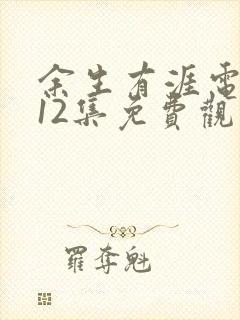 余生有涯電
12集免費觀
羅奪魁